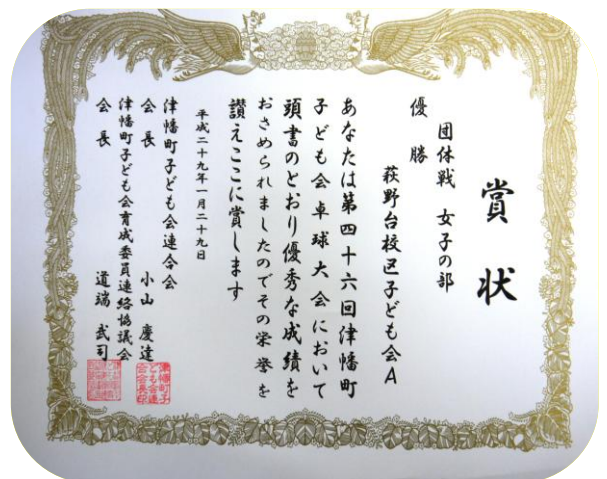 賞状
団体戦 女子の部
優勝
萩野台校区子ども会A
あなたは第四十六回津幡町
子ども会卓球大会において
頭書のとおり優秀な成績を
おさめられましたのでその栄誉を
讃えここに賞します
平成二十九年一月二十九日
津幡町子ども会連合会
会長 小山慶達
津幡町子ども会育成委員連絡協議会
会長 道端武司